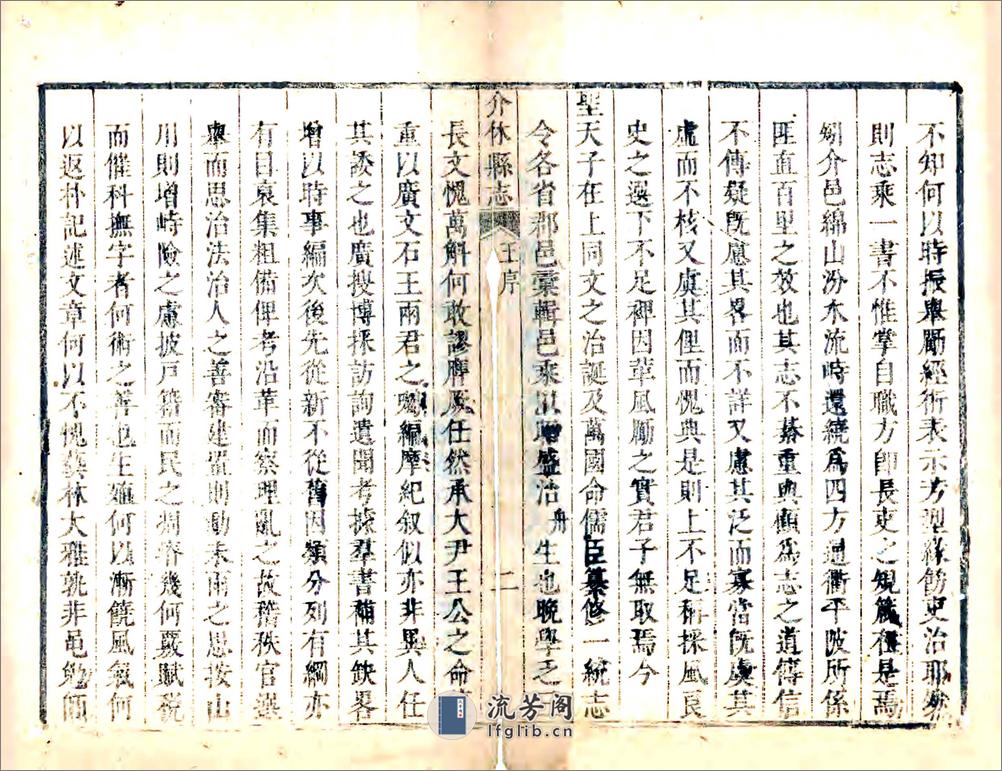 不知何以時振舉勵經術表示芳型緣飭吏治耶然
則志乘一書不惟掌自職方卽長吏之規箴在是焉
矧介邑綿山汾水流峙還繞爲四方通衢平陂所係
匪直百里之效也其志不綦重與顧爲志之道傳信
不傳疑旣慮其畧而不詳又慮其泛而寡當旣虞其
虛而不核又虞其俚而愧典是則上不足稱採風良
史之選下不足裨因革風勵之實君子無取焉今
聖天子在上同文之治誕及萬國命儒臣纂修一統志
令各省郡邑彙輯邑乘以 盛治 舟 生也晚學乏
介休縣志 王序 二
長文愧萬斛何敢謬膺厥任然承大尹王公之命
重以廣文石王兩君之囑編摩紀叙似亦非異人任
其諉之也廣搜博採訪詢遺聞考據羣書補其缺畧
增以時事編次後先從新不從舊因類分列有綱亦
有目裒集粗備俾考沿革而察理亂之故稽秩官選
舉而思治法治人之善審建置則動未雨之思按山
川則增峙險之慮披戶籍而民之凋瘠幾何覈賦稅
而催科撫字者何術之善也生 何以漸饒風氣何
以返朴記述文章何以不愧藝林大雅孰非邑 師
流芳阁
lfglib.cn